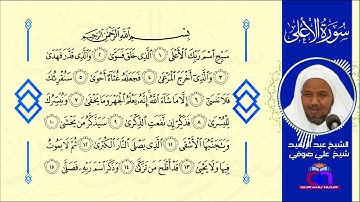 بِسْمِ اللَّهِ الرَّحْمَٰنِ الرَّحِيمِ
سَبِّحِ اسْمَ رَبِّكَ الْأَعْلَى ١ الَّذِي خَلَقَ فَسَوَّىٰ ٢ وَالَّذِي قَدَّرَ فَهَدَىٰ
٣ وَالَّذِي أَخْرَجَ الْمَرْعَىٰ ٤ فَجَعَلَهُ غُثَاءً أَحْوَىٰ ٥ سَنُقْرِئُكَ
فَلَا تَنسَىٰ ٦ إِلَّا مَا شَاءَ اللَّهُ إِنَّهُ يَعْلَمُ الْجَهْرَ وَمَا يَخْفَىٰ ٧ وَنُيَسِّرُكَ
لِلْيُسْرَىٰ ٨ فَذَكِّرْ إِن نَّفَعَتِ الذِّكْرَىٰ ٩ سَيَذَّكَّرُ مَن يَخْشَىٰ ١٠
وَيَتَجَنَّبُهَا الْأَشْقَى ١١ الَّذِي يَصْلَى النَّارَ الْكُبْرَىٰ ١٢ ثُمَّ لَا يَمُوتُ
فِيهَا وَلَا يَحْيَىٰ ١٣ قَدْ أَفْلَحَ مَن تَزَكَّىٰ ١٤ وَذَكَرَ اسْمَ رَبِّهِ فَصَلَّىٰ ١٥
سُورَةُ الْأَعْلَى
الشيخ عبد الرشيد
شيخ علي صوفي
QUR'ANU NUUR